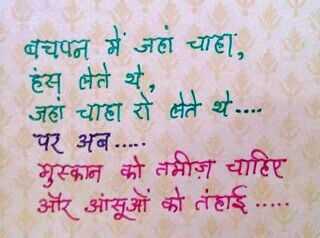 बचपन में जहां चाहा,
हंस लेते थे,
जहां चाहा रो लेते थे....
पर अब.....
मुस्कान को तमीज़ चाहिए
और आंसूओं को तंहाई.....